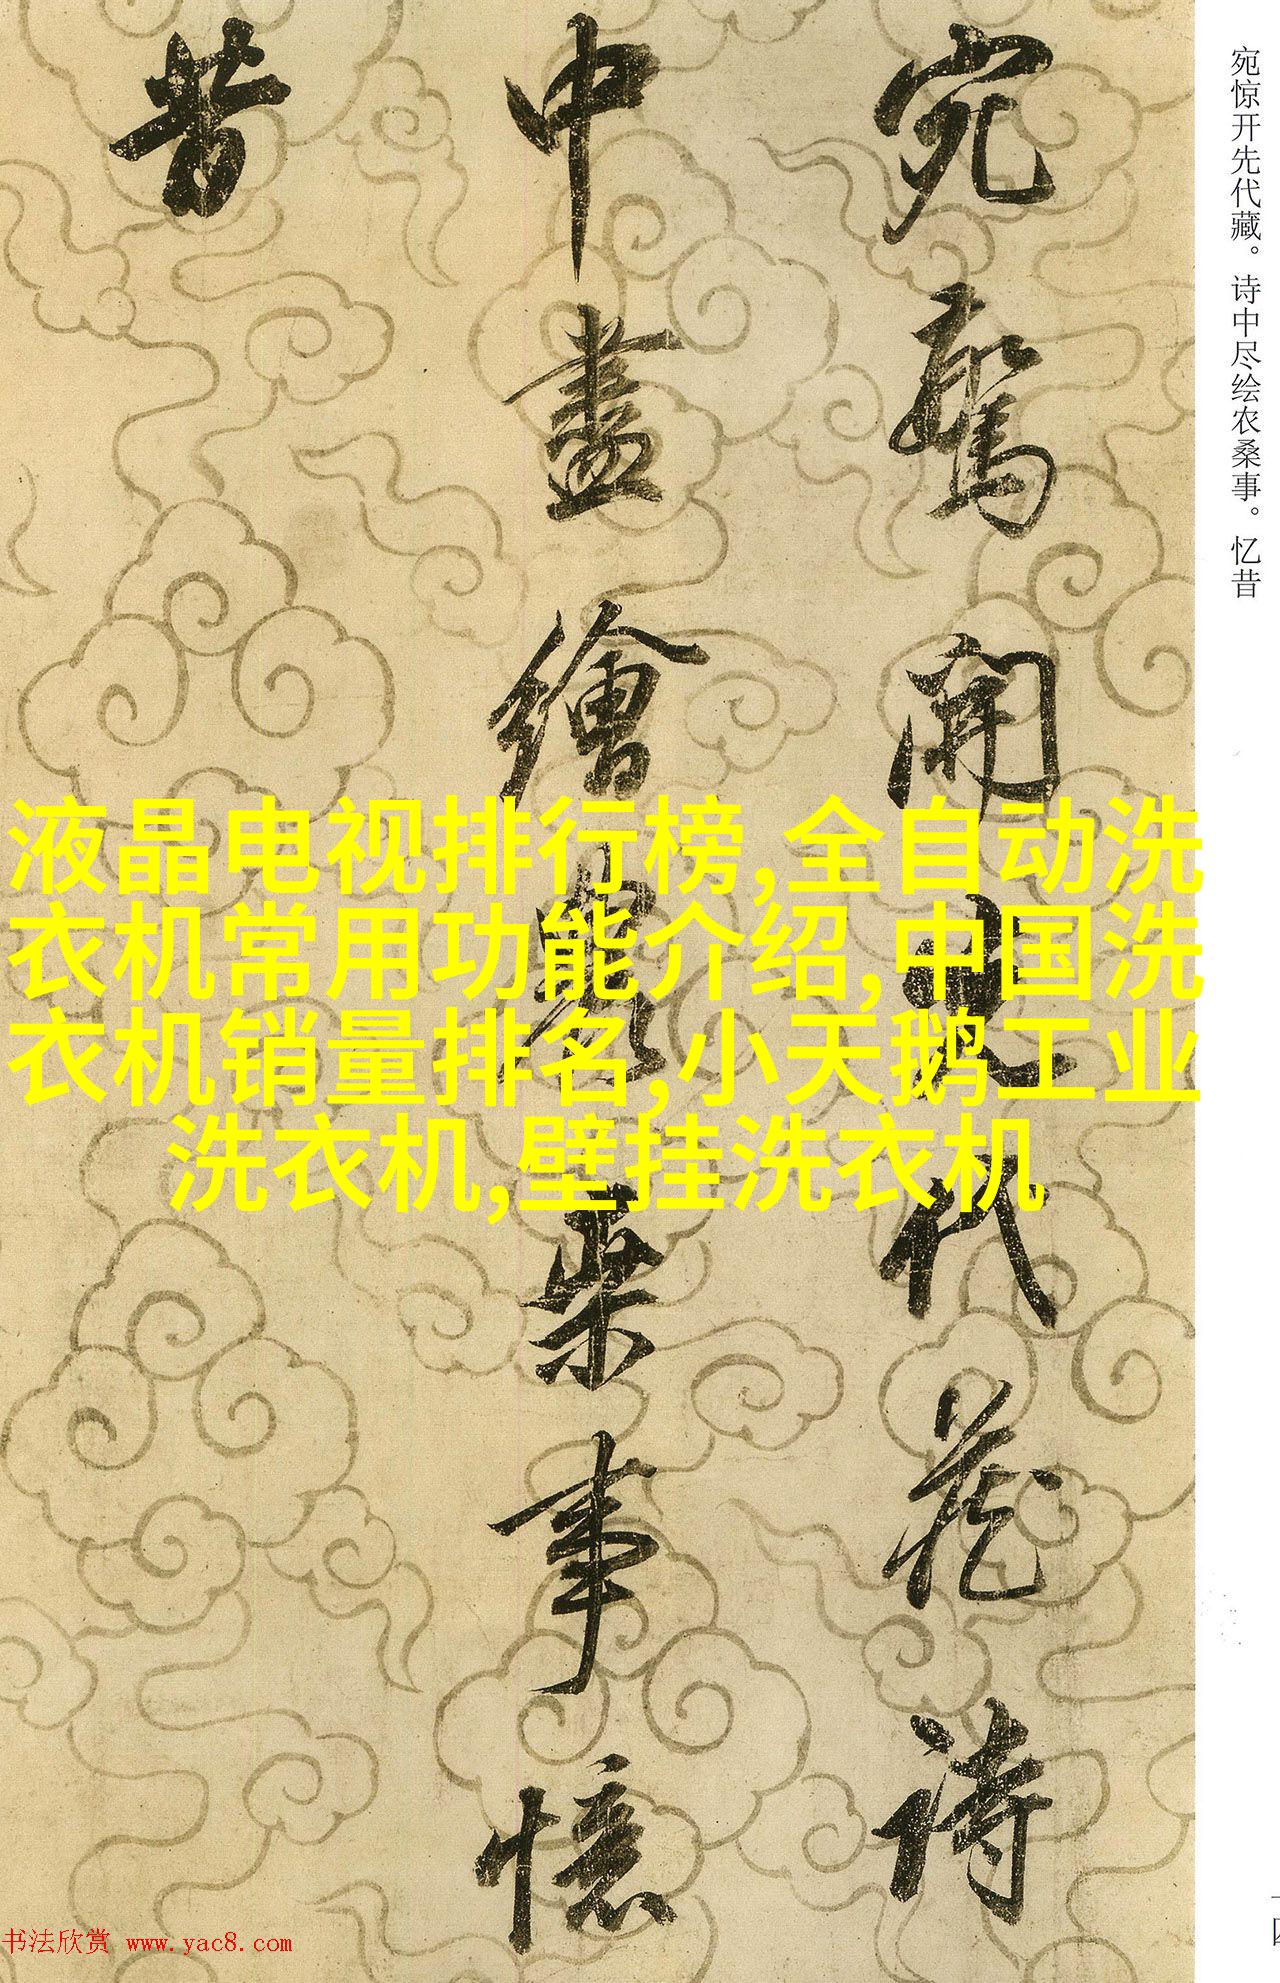 宛驚開先代藏詩
中盡繪農桒事憶
昔
宛惊开先代藏。诗中尽绘农桑事。忆昔
液晶电视排行榜,全自动洗
衣机常用功能介绍,中国洗
衣机销量排名,小天鹅工业
洗衣机,壁挂洗衣机
书法欣赏 www.yac8.com